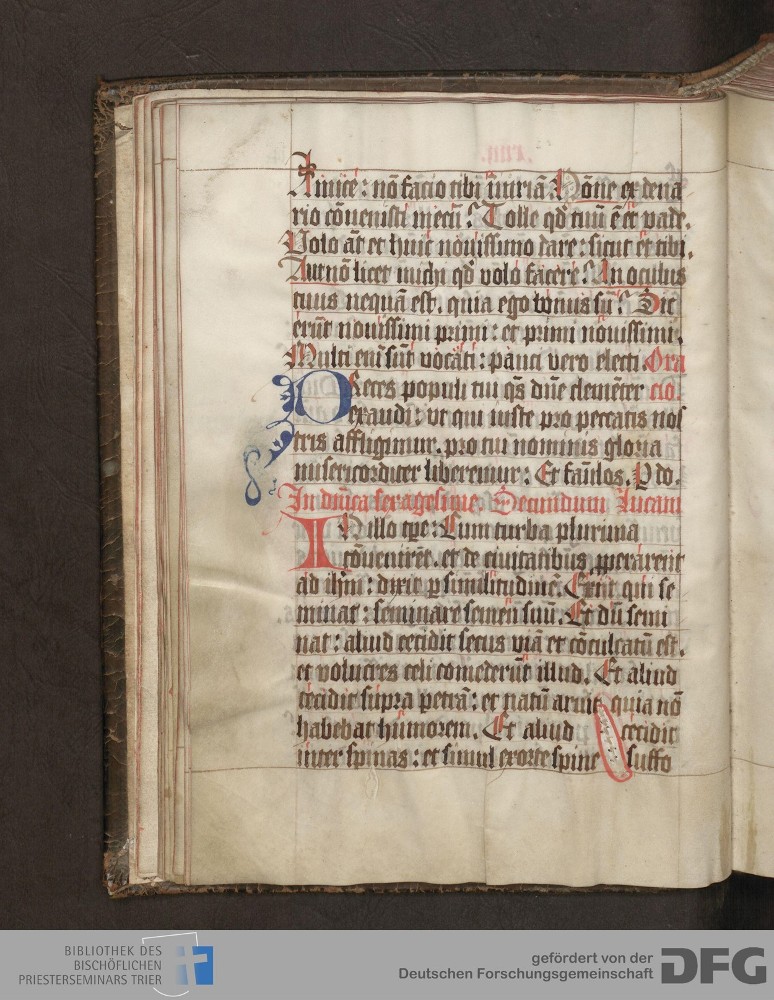 Amice: nō facio tibi iniuriā. Nōne ex dena
rio cōuenisti mecū? Tolle qd tuū ē et vade.
Volo āt et huic nouissimo dare: sicut et tibi.
Aut nō licet michi qd volo facere? An oculus
tuus nequā est. quia ego bonus sū? Sic
erūt nouissimi primi: et primi nouissimi.
Multi eni sūt vocati: pauci vero electi. Ora
Preces populi tui qs dne clemēter cio.
exaudi: vt qui iuste pro peccatis nos
tris affligimur. pro tui nominis gloria
misericorditer liberemur: Et famlos. P do.
In dnica sexagesime. Secundum Lucam
IN illo tpe: Cum turba plurima
cōuenirēt. et de ciuitatibus pperarent
ad ihm: dixit p similitudinē. Exiit qui se
minat: seminare semen suū. Et dū semi
nat: aliud cecidit secus viā et cōculcatū est.
et volucres celi comederūt illud. Et aliud
cecidit supra petrā: et natū aruit. quia nō
habebat humorem. Et aliud cecidit
inter spinas: et simul exorte spine suffo
BIBLIOTHEK DES
BISCHÖFLICHEN
PRIESTERSEMINARS TRIER
gefördert von der
Deutschen Forschungsgemeinschaft
DFG